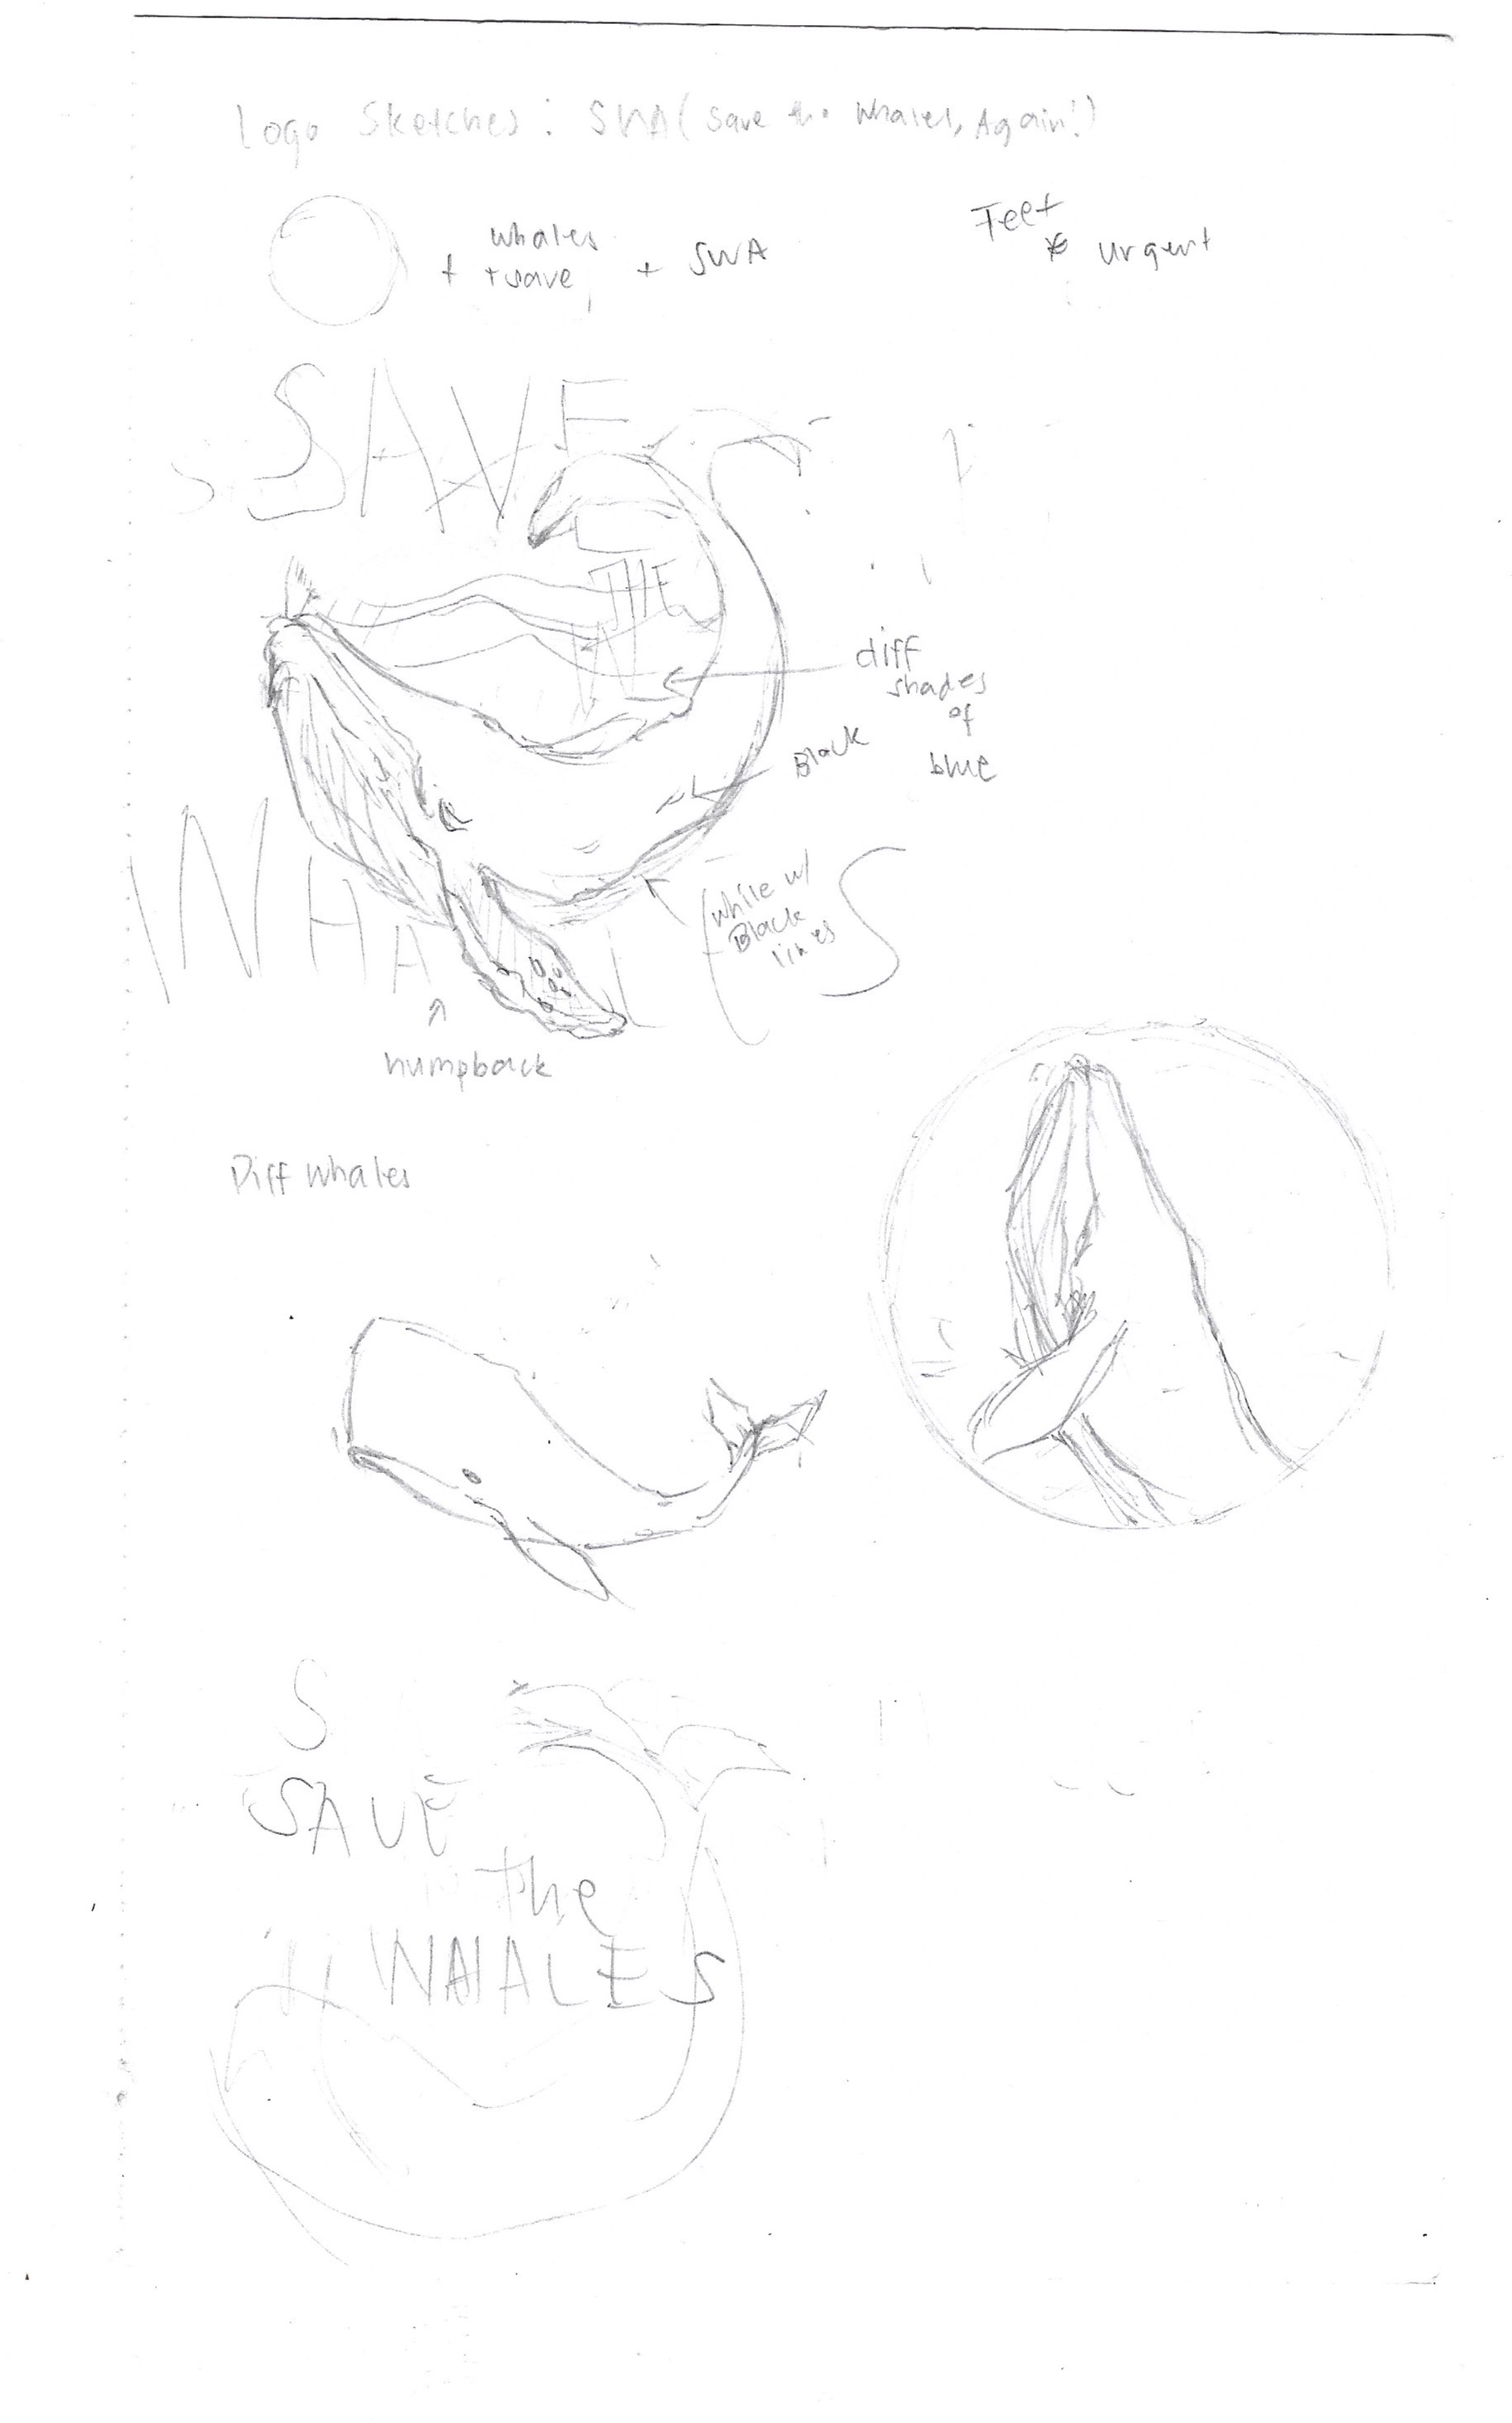 Logo Sketches: SWA (Save the Whales, Again!)
whales
+ +save + SWA
Feet
* urgent
SAVE
THE
W
diff
shades
of
blue
Black
WHALES
(white w/
Black
lines
humpback
Diff Whales
S
SAVE
the
WHALES